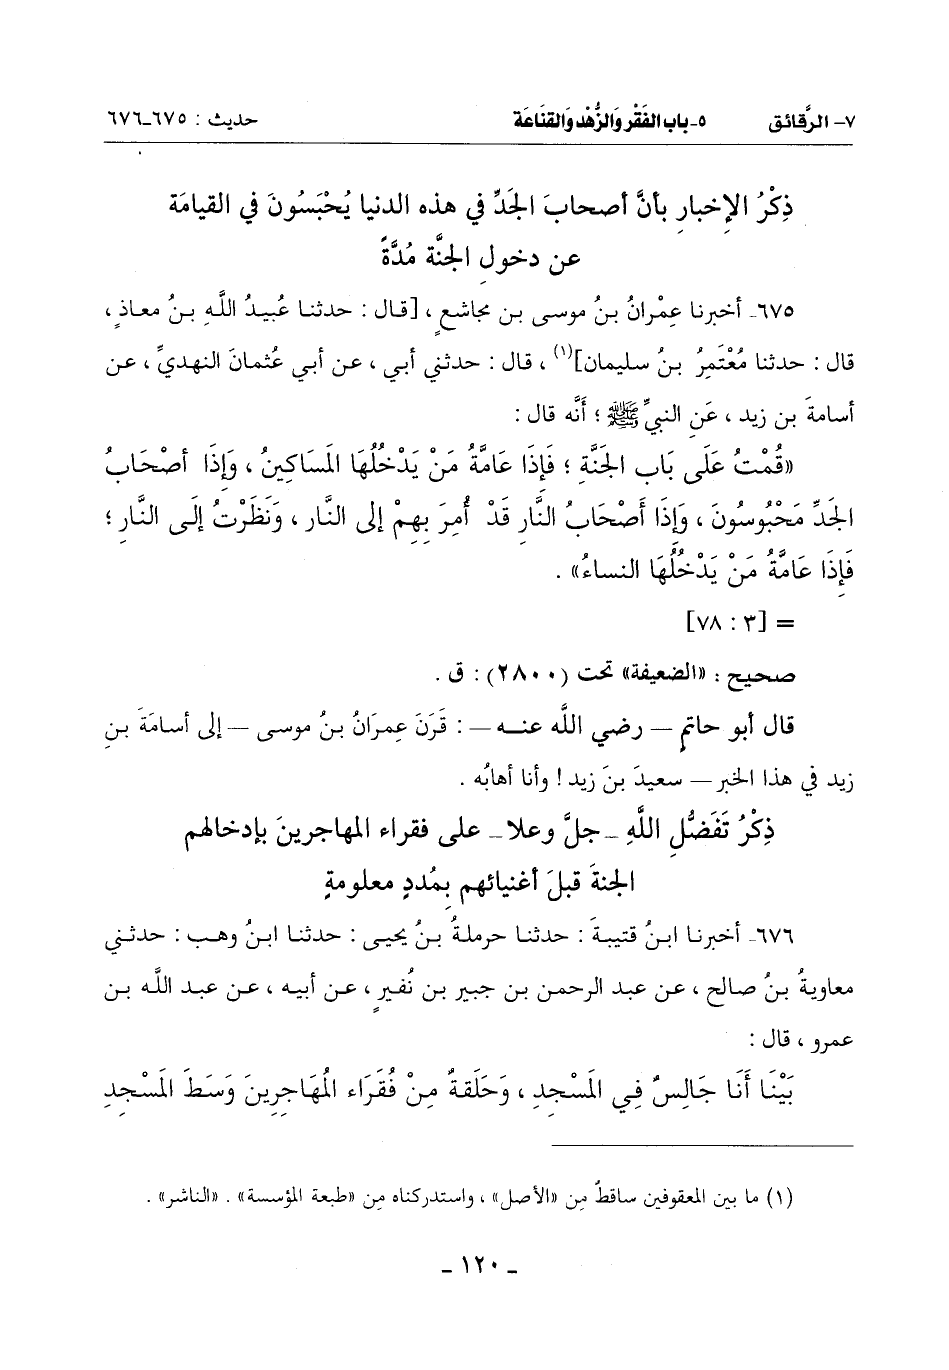 ٧- الرَّقائق ٥-باب الفَقْر والزُّهْد والقَنَاعَة حديث : ٦٧٥-٦٧٦
ذِكْرُ الإخبارِ بأنَّ أصحابَ الجَدِّ في هذه الدنيا يُحْبَسُونَ في القيامَة
عن دخولِ الجنَّة مُدَّةً
٦٧٥- أخبرنا عِمْرانُ بنُ موسى بن مجاشعٍ ، [قال : حدثنا عُبيدُ اللَّهِ بنُ معاذٍ ،
قال : حدثنا مُعْتَمِرُ بنُ سليمان](١) ، قال : حدثني أبي ، عن أبي عُثمانَ النهديِّ ، عن
أسامةَ بن زيد ، عَنِ النبيِّ ﷺ ؛ أنَّه قال :
«قُمْتُ عَلَى بَابِ الجَنَّةِ ؛ فَإِذَا عَامَّةُ مَنْ يَدْخُلُهَا المَسَاكِينُ ، وَإِذَا أصْحَابُ
الجَدِّ مَحْبُوسُونَ ، وَإِذَا أَصْحَابُ النَّارِ قَدْ أُمِرَ بِهِمْ إلى النَّارِ ، وَنَظَرْتُ إلَى النَّارِ ؛
فَإِذَا عَامَّةُ مَنْ يَدْخُلُهَا النساءُ» .
= [٣ : ٧٨]
صحيح : «الضعيفة» تحت (٢٨٠٠) : ق .
قال أبو حاتمٍ – رضي اللَّه عنه – : قَرَنَ عِمرَانُ بنُ موسى – إلى أسامَةَ بنِ
زيد في هذا الخبر – سعيدَ بنَ زيد ! وأنا أهابُه .
ذِكْرُ تَفَضُّلِ اللَّهِ -جلَّ وعلا- على فقراء المهاجرينَ بإدخالهم
الجنةَ قبلَ أغنيائهم بمُددٍ معلومةٍ
٦٧٦- أخبرنا ابنُ قتيبةَ : حدثنا حرملةُ بنُ يحيى : حدثنا ابنُ وهب : حدثني
معاويةُ بنُ صالح ، عن عبد الرحمن بن جبير بن نُفيرٍ ، عن أبيه ، عن عبد الله بن
عمرو ، قال :
بَيْنَا أَنَا جَالِسٌ فِي المَسْجِدِ ، وَحَلَقةٌ مِنْ فُقَرَاء المُهَاجِرِينَ وَسَطَ المَسْجِدِ
(١) ما بين المعقوفين ساقطٌ مِن «الأصل» ، واستدركناه مِن «طبعة المؤسسة» . «الناشر» .
- ١٢٠ -